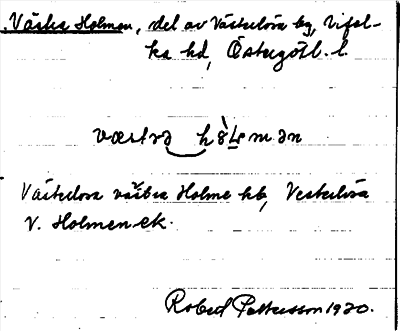 Västra Holmen, del av Västerlösa by, Vifol-
ka hd, Östergötl. l.
væstrə hòLmən
Västerlösa västra Holme hb, Vesterlösa
V. Holmen ek.
Robert Pettersson 1920.